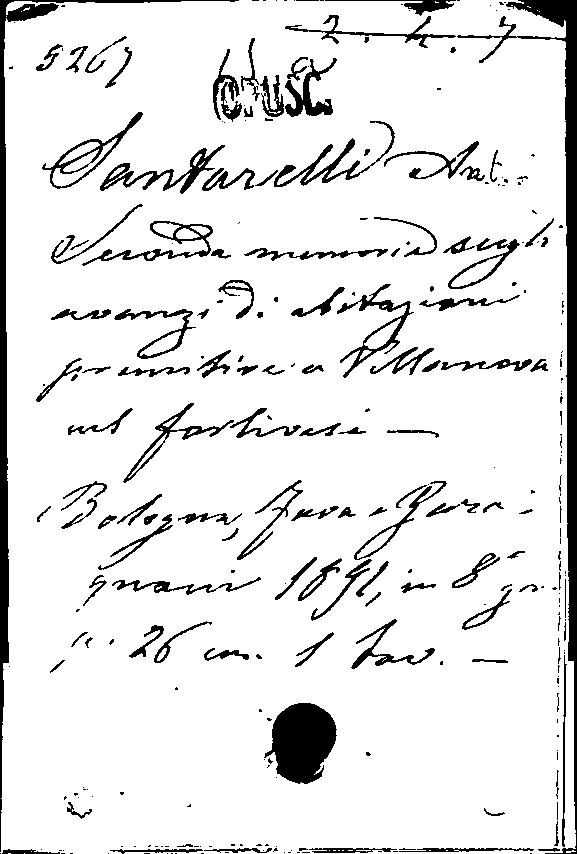 2. 4. 7
5267
OPUSC.
Santarelli Ant.
Seconda memoria sugli
avanzi di abitazioni
primitive a Villanova
nel forlivese —
Bologna, Fava e Gara-
gnani 1891, in 8° gr.
p. 26 con 1 tav. —